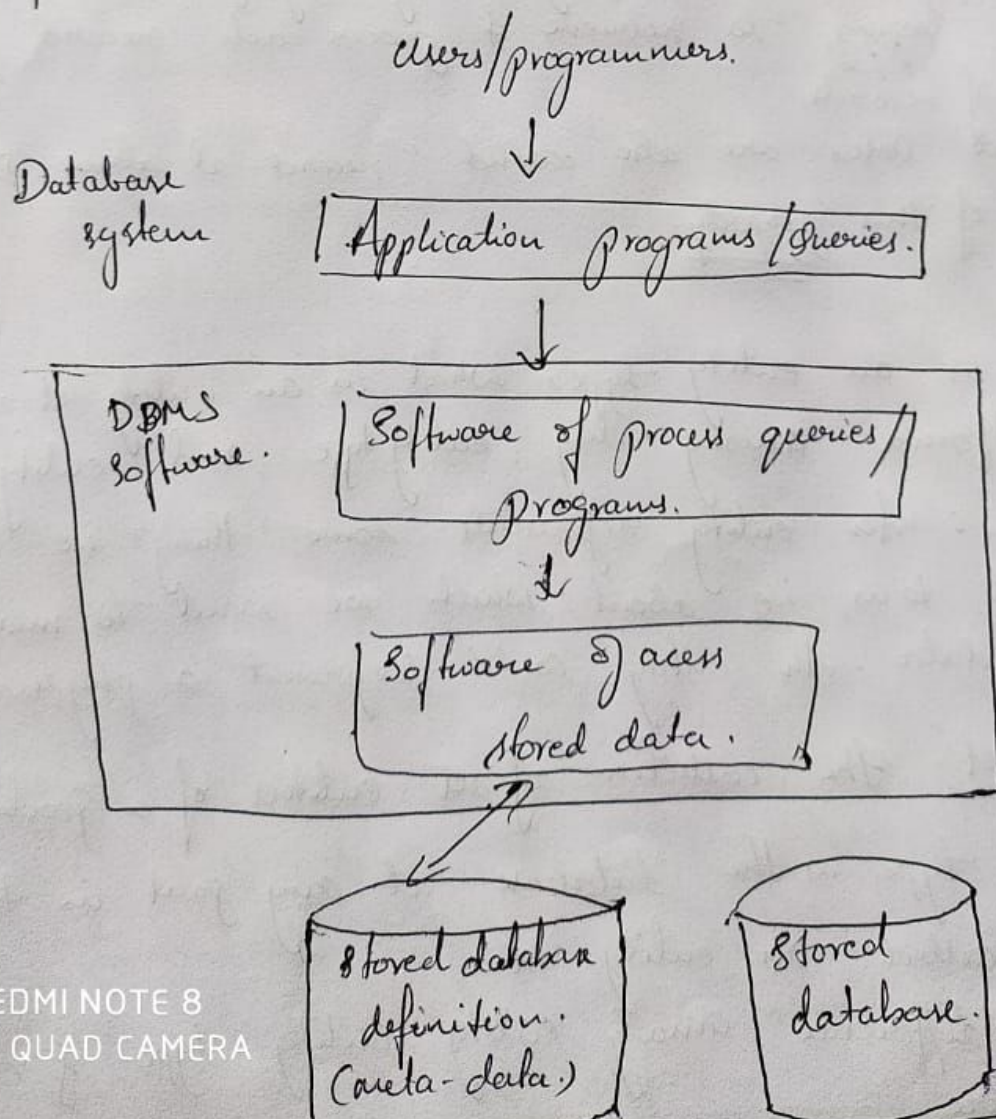 Users/programmers.
Database
system
Application programs / Queries.
DBMS
Software.
Software of process queries/
programs.
Software of acess
stored data.
stored database
definition.
(meta-data.)
stored
database.
EDMI NOTE 8
QUAD CAMERA